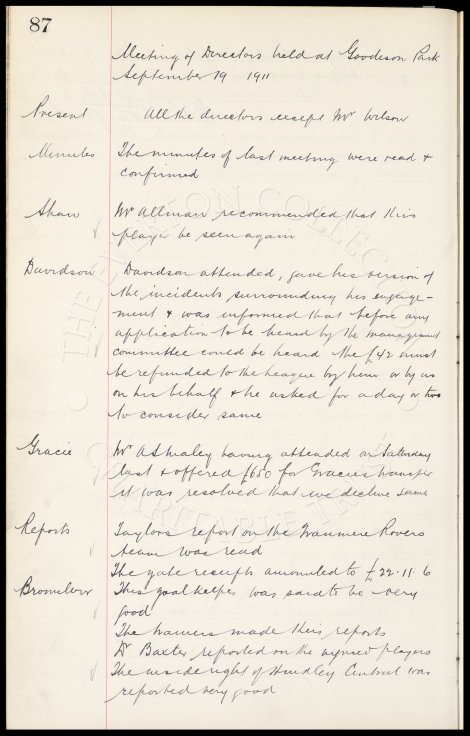 87
Meeting of Directors held at Goodison Park
September 19 1911
Present All the directors except Mr Wilson
Minutes The minutes of last meeting were read &
confirmed
Shaw Mr Allman recommended that this
player be seen again
Davidson Davidson attended, gave his version of
the incidents surrounding his engage-
ment & was informed that before any
application to be heard by the management
committee could be heard the £42 must
be refunded to the league by him or by us
on his behalf & he asked for a day or two
to consider same
Gracie Mr Ashworth having attended on Saturday
last & offered £650 for Gracies transfer
it was resolved that we decline same
Reports Taylors report on the Tranmere Rovers
team was read
The gate receipts amounted to £22.11.6
Bromilow This goalkeeper was said to be very
good
The trainers made their reports
Dr Baxter reported on the injured players
The inside right of Hindley Central was
reported very good
THE EVERTON COLLECTION
CHARITABLE TRUST